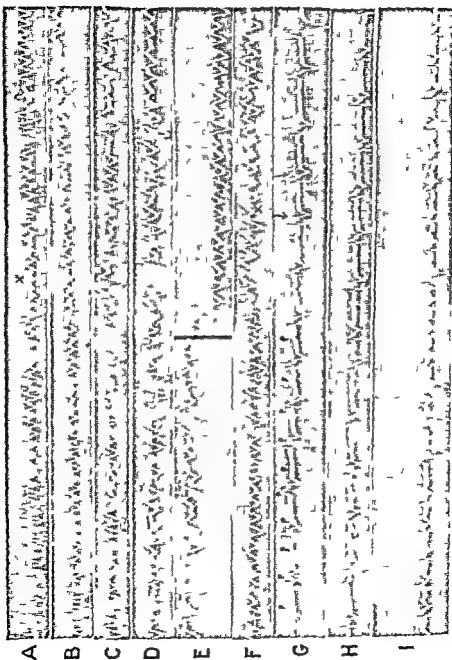 A
B
C
D
E
F
G
H
I
x